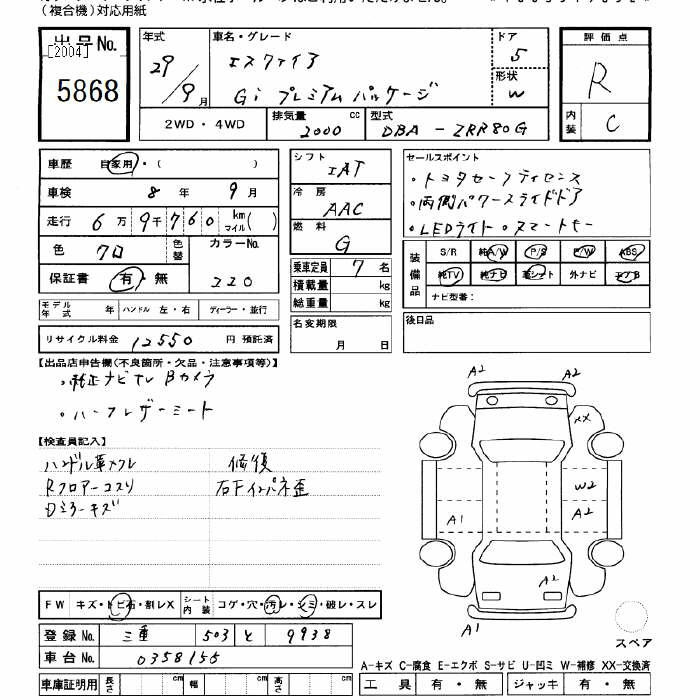 (複合機)対応用紙
出品No.
[2004]
5868
年式
29/9月
車名・グレード
エスクァイア
Gi プレミアムパッケージ
ドア
5
形状
W
評価点
R
内装
C
2WD・4WD
排気量
2000 cc
型式
DBA - ZRR80G
車歴 自家用・( )
車検 8年 9月
走行 6万9千760 km マイル( )
色 クロ 色替
カラーNo.
220
保証書 有・無
モデル年式 年 ハンドル 左・右 ディーラー・並行
リサイクル料金 12550 円 預託済
シフト
IAT
冷房
AAC
燃料
G
乗車定員 7名
積載量 kg
総重量 kg
名変期限
月 日
セールスポイント
・トヨタセーフティセンス
・両側パワースライドドア
・LEDライト・スマートキー
装備品
S/R 純A/W P/S P/W ABS
純TV 純ナビ 革シート 外ナビ エアB
ナビ型番:
後日品
【出品店申告欄(不良箇所・欠品・注意事項等)】
・純正ナビTV Bカメラ
・ハーフレザーシート
【検査員記入】
ハンドル革スレ 修復
Rフロアーコスリ 右Fインパネ歪
Dミラーキズ
A2
A2
XX
W2
A2
A1
A2
A1
スペア
FW キズ・トビ石・割レX シート内装 コゲ・穴・汚レ・シミ・破レ・スレ
登録No. 三重 503 と 9938
車台No. 0358155
車庫証明用 長さ cm 幅 cm 高さ cm
A-キズ C-腐食 E-エクボ S-サビ U-凹ミ W-補修 XX-交換済
工具 有・無 ジャッキ 有・無